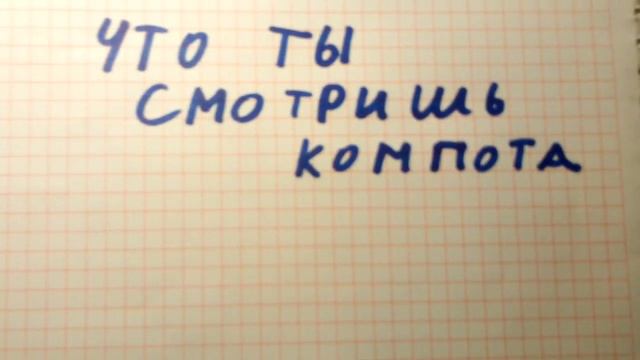 ЧТО ТЫ
СМОТРИШЬ
КОМПОТА